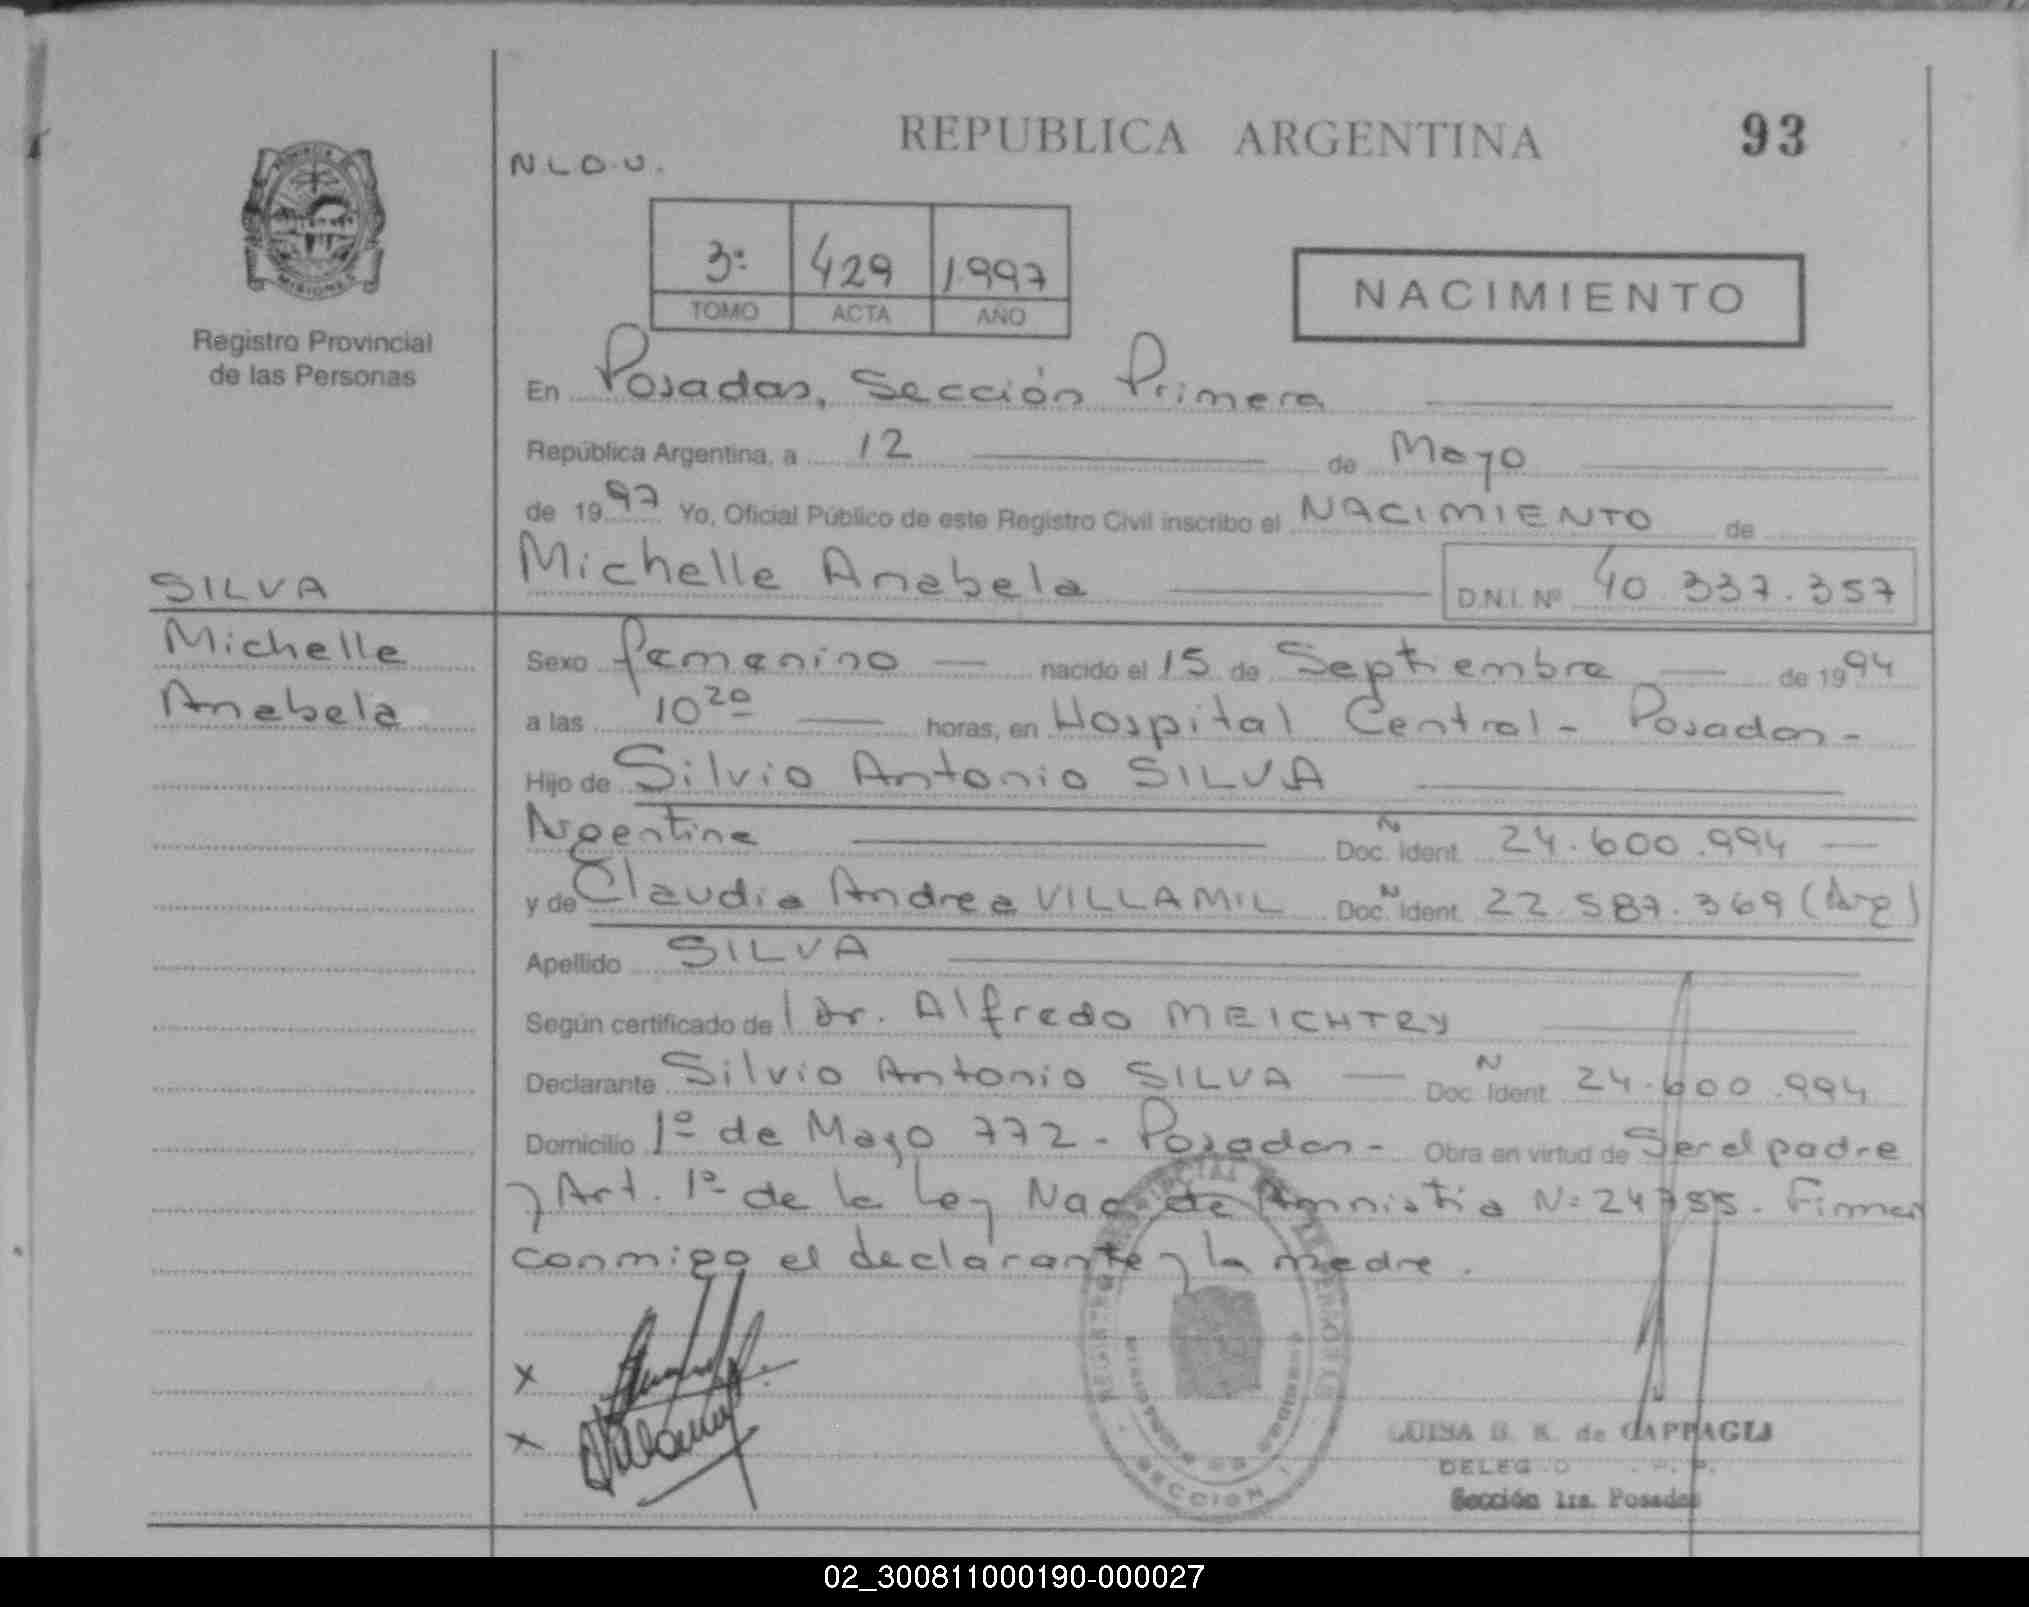 REPUBLICA ARGENTINA
93
N L O . U .
3º 429 1997
TOMO ACTA AÑO
NACIMIENTO
MISIONES
Registro Provincial
de las Personas
En Posadas, Sección Primera
República Argentina, a 12 de Mayo
de 1997 Yo, Oficial Público de este Registro Civil inscribo el NACIMIENTO de
Michelle Anabela D.N.I. Nº 40.337.357
SILVA
Michelle
Anabela
Sexo femenino nacido el 15 de Septiembre de 1994
a las 10 20 horas, en Hospital Central - Posadas -
Hijo de Silvio Antonio SILVA
Argentina Doc. Ident. N 24.600.994
y de Claudia Andrea VILLAMIL Doc. Ident. N 22.587.369 (Arg)
Apellido SILVA
Según certificado de l Dr. Alfredo MEICHTRY
Declarante Silvio Antonio SILVA Doc. Ident. N 24.600.994
Domicilio 1º de Mayo 772 - Posadas - Obra en virtud de Ser el padre
y Art. 1º de la Ley Nac de Amnistia Nº 24755. Firman
conmigo el declarante y la madre.
x
x
SECCION
LUISA B. K. de
Sección 1ra. Posadas
02_300811000190-000027